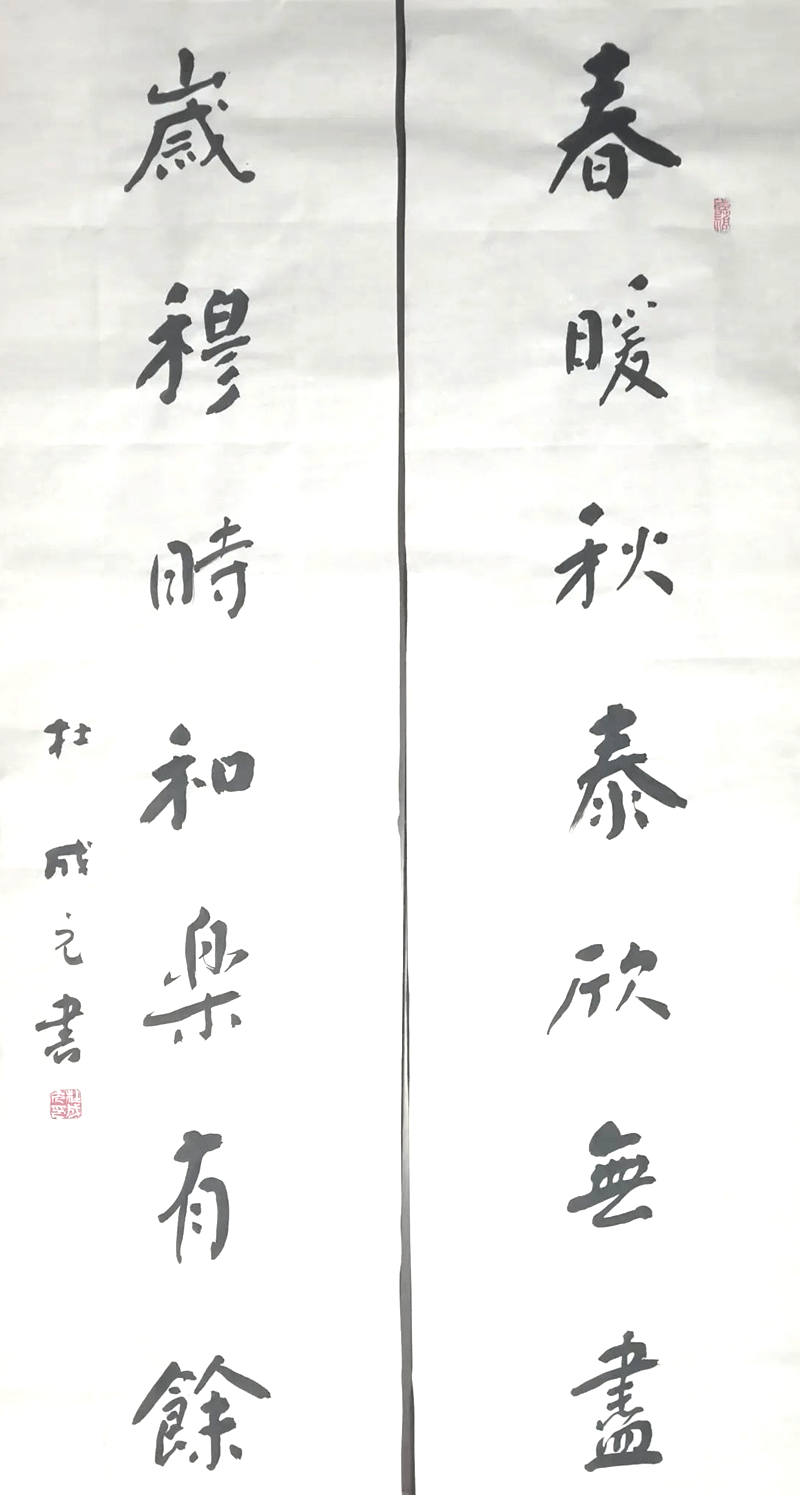 春暖秋泰欣無盡
歲穆時和樂有餘
杜成元書